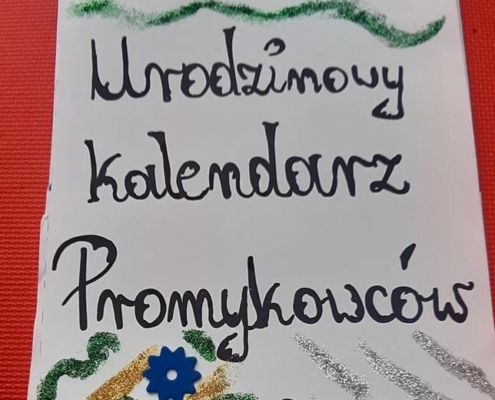 Urodzinowy
kalendarz
Promykowców